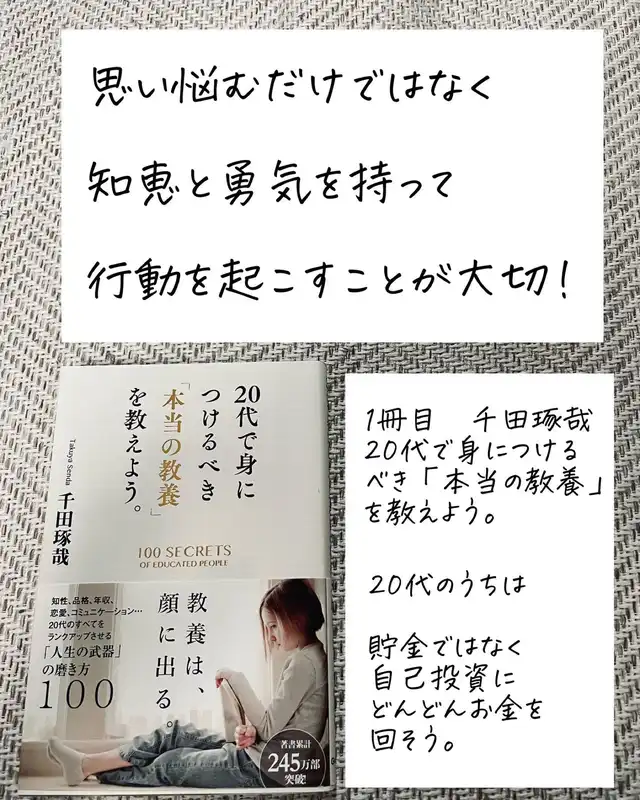 思い悩むだけではなく
知恵と勇気を持って
行動を起こすことが大切!
20代で身に
つけるべき
「本当の教養」
を教えよう。
Takuya Senda
千田琢哉
100 SECRETS
OF EDUCATED PEOPLE
知性、品格、年収、
恋愛、コミュニケーション…
20代のすべてを
ランクアップさせる
「人生の武器」
の磨き方
100
教養は、
顔に出る。
著書累計
245万部
突破!
1冊目 千田琢哉
20代で身につける
べき「本当の教養」
を教えよう。
20代のうちは
貯金ではなく
自己投資に
どんどんお金を
回そう。